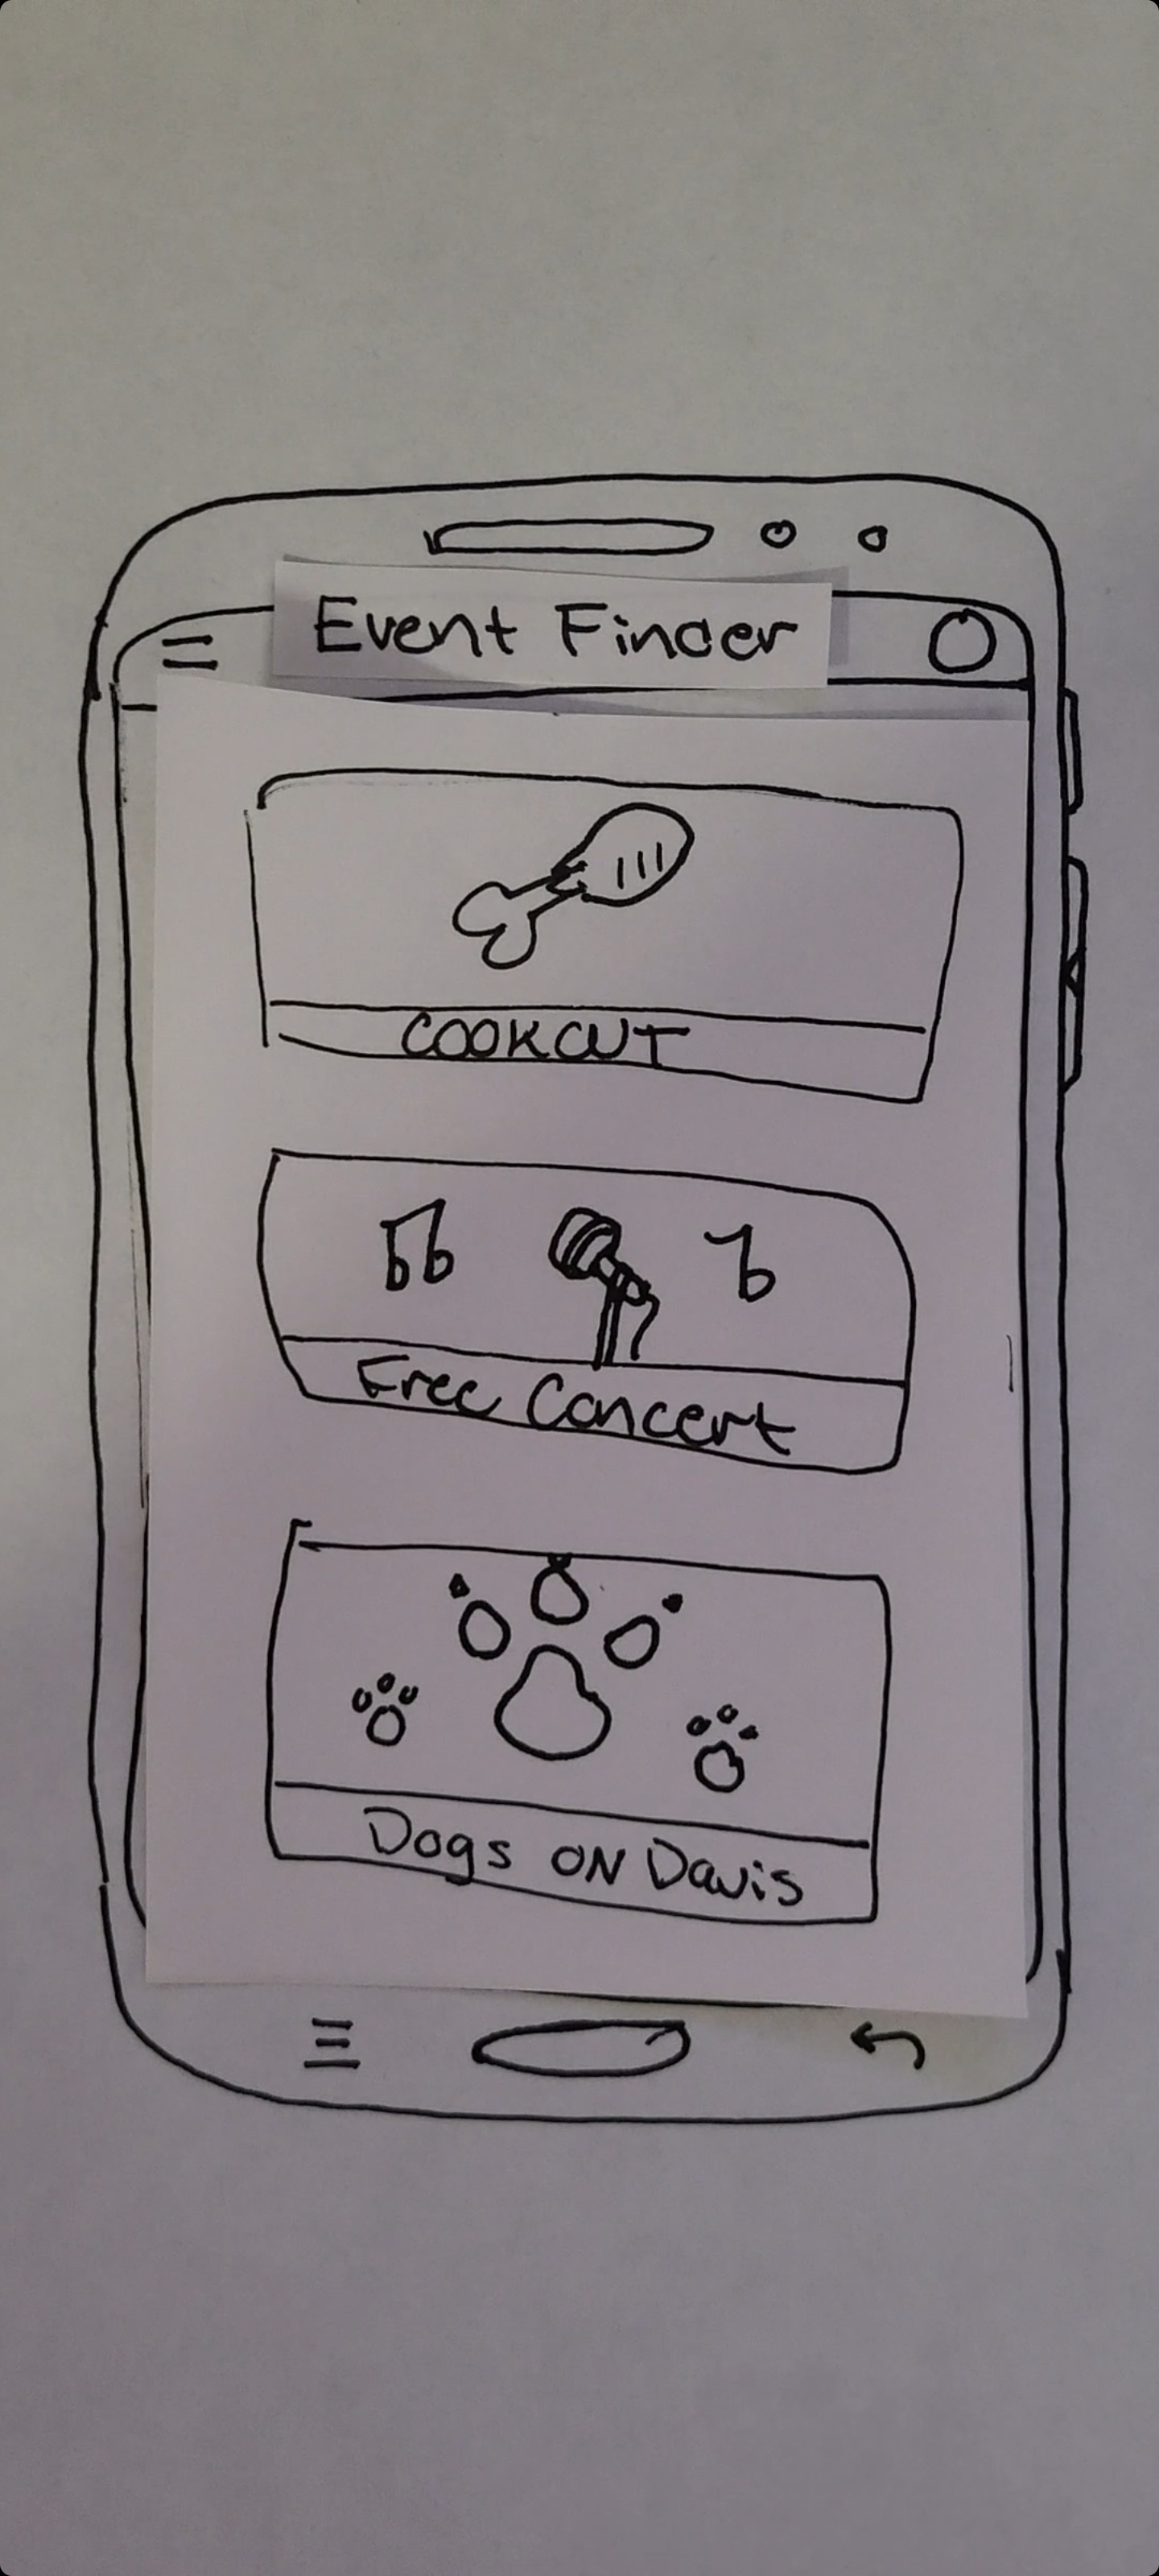 Event Finder
COOKOUT
Free Concert
Dogs ON Davis